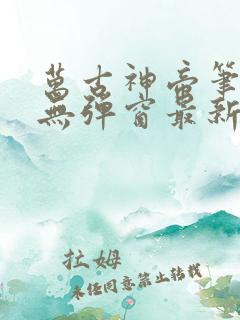 萬古神帝筆
無彈窗最新
拉姆
未經同意禁止轉載